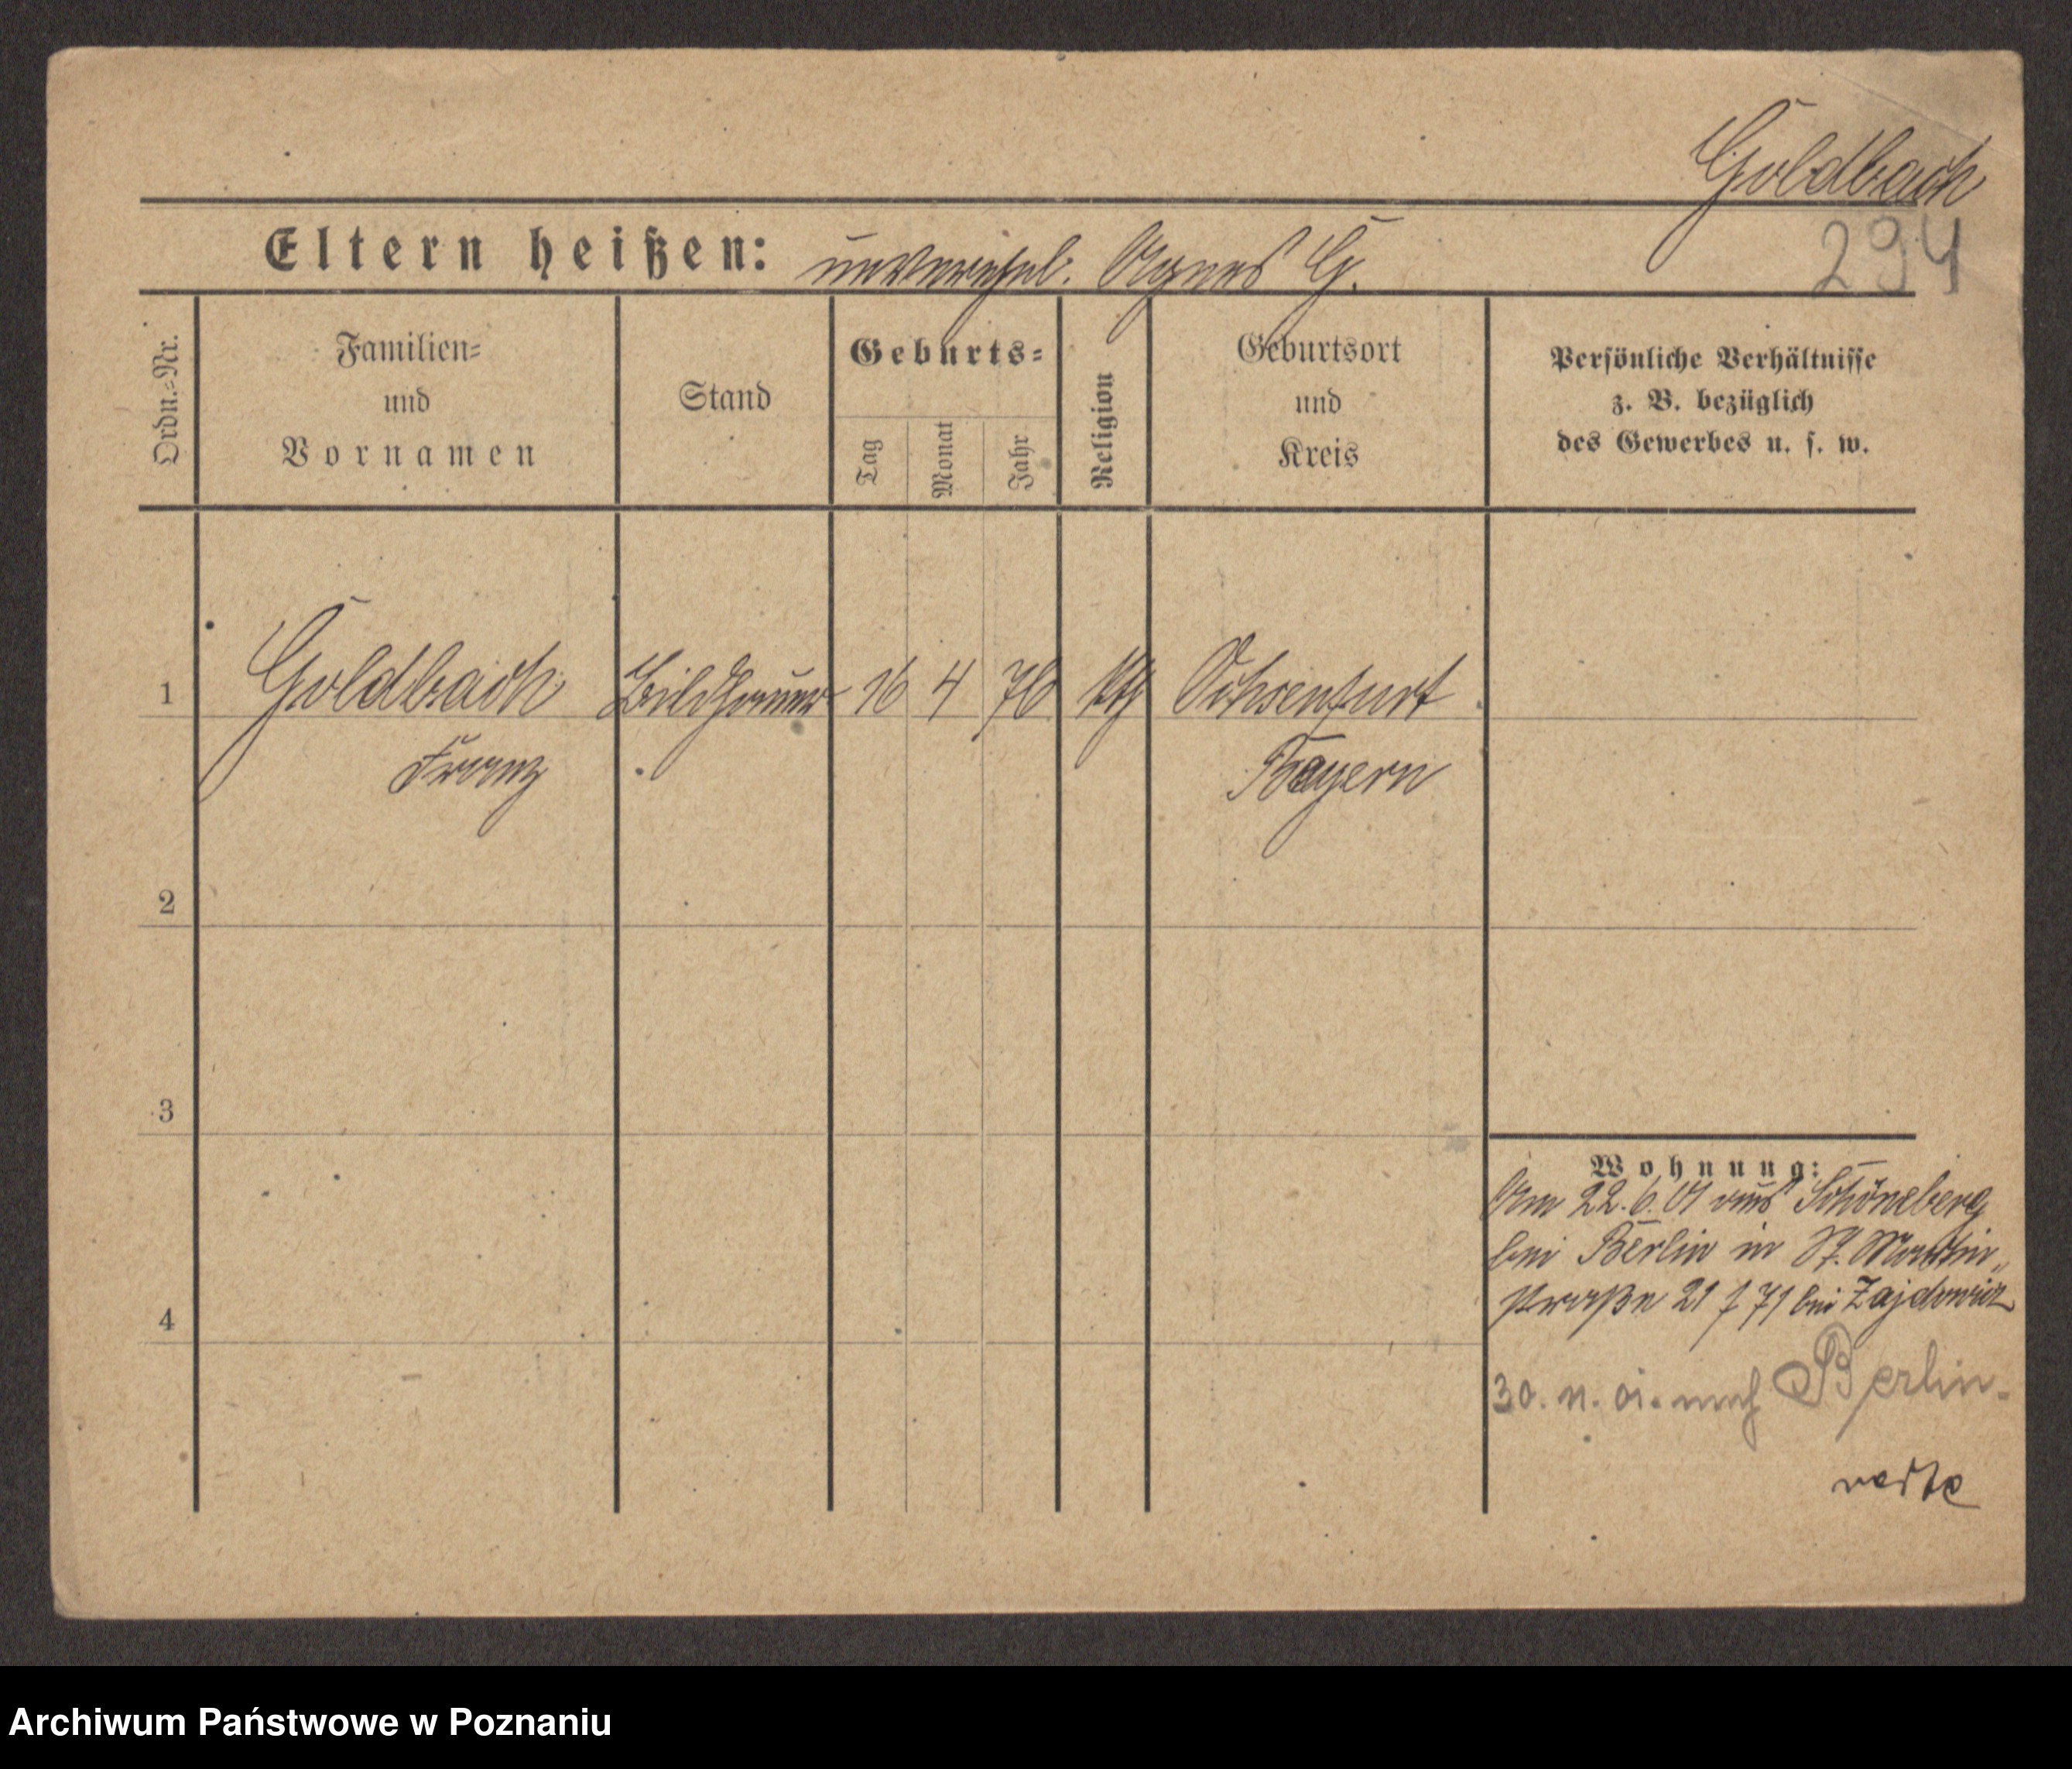 Goldbach
294
Eltern heißen: unverehel. Agnes G.
Ordn.-Nr.
Familien-
und
Vornamen
Stand
Geburts-
Tag
Monat
Jahr
Religion
Geburtsort
und
Kreis
Persönliche Verhältnisse
z. B. bezüglich
des Gewerbes u. s. w.
1 Goldbach Bildhauer 16 4 76 kth Ochsenfurt
Franz Bayern
2
3
4
Wohnung:
Am 22.6.01 aus Schöneberg
bei Berlin in St. Martin„
straße 21 f 71 bei Zajdowicz
30. 11. 01. nach Berlin.
Archiwum Państwowe w Poznaniu